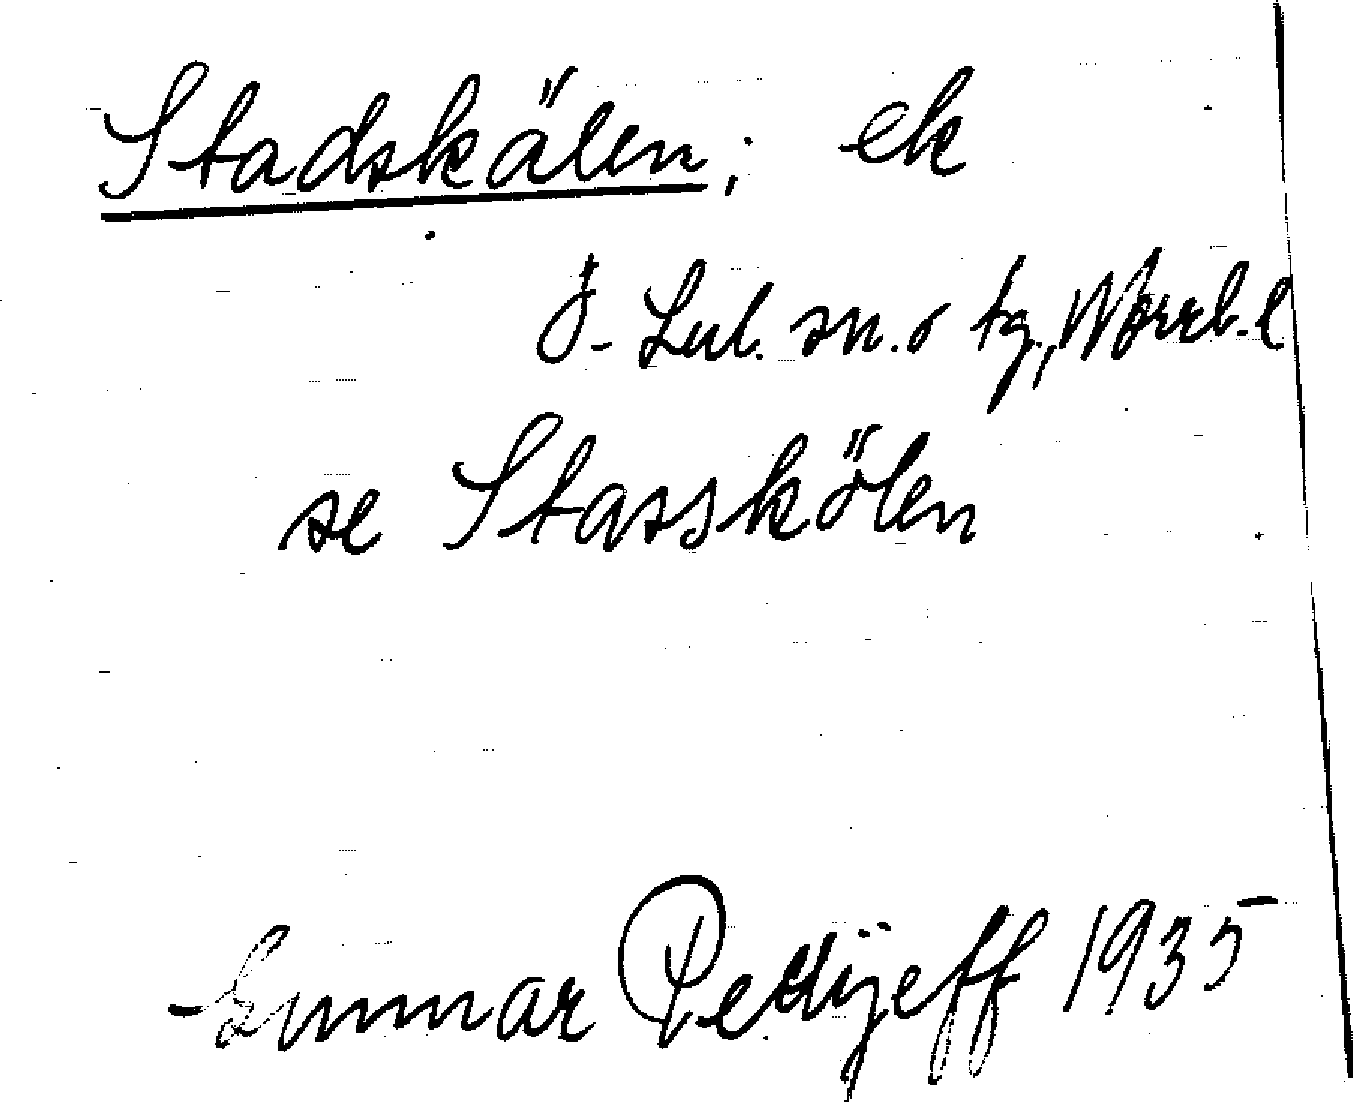 Stadskälen; ek
J- Lul. sn. o tg., Norrb. l
se Stasskölen
Gunnar Pellijeff 1935